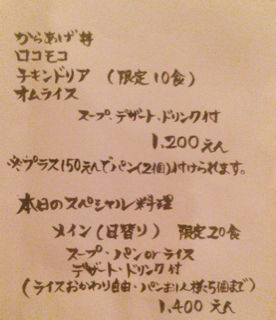 からあげ丼
ロコモコ
チキンドリア (限定10食)
オムライス
スープ、デザート、ドリンク付
1,200えん
※プラス150えんでパン(2個)付けられます。
本日のスペシャル料理
メイン(日替り) 限定20食
スープ・パンorライス
デザート・ドリンク付
(ライスおかわり自由・パンお1人様5個まで)
1,400えん